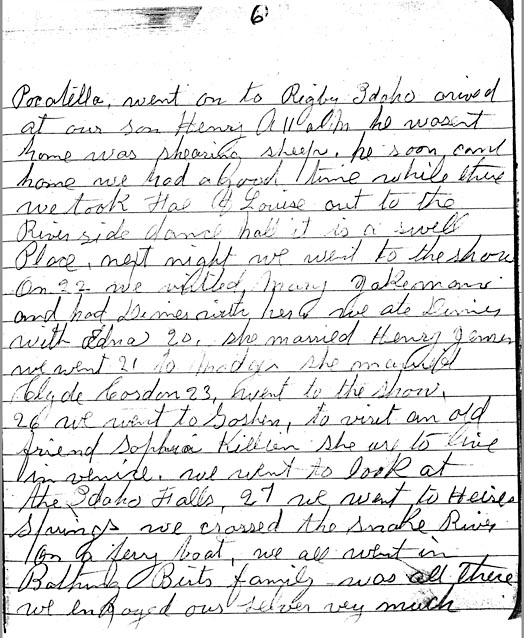 6
Pocatella, went on to Rigby Idaho arived
at our son Henry A 11 a.m he wasent
home was shearing sheep. he soon came
home we had a good time while there
we took Hae & Louise out to the
River side dance hall it is a swell
Place, next night we went to the show
On 22 we visited Mary
and had Diner with her we ate Diner
with Edna 20, she married Henry Jensen
we went 21 to Madges she married
Clyde Cordon 23, went to the show,
26 we went to Goshen, to visit an old
friend Sophia Killian she use to live
in venice. we went to look at
the Idaho Falls, 27 we went to Heise
Springs we crossed the snake River
on a ferry boat, we all went in
Bathing Berts family was all there
we enjoyed our selves very much